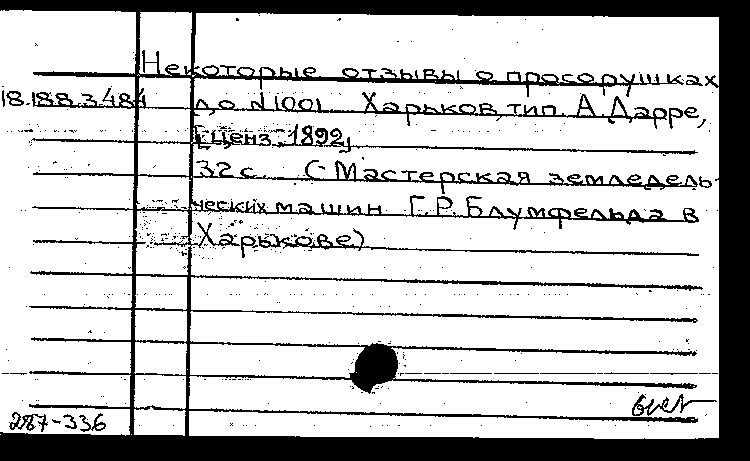 Некоторые отзывы о просорушках
18.188.3.484 до №1001 Харьков, тип. А. Дарре,
[ценз. 1892]
32 с. (Мастерская земледель-
ческих машин Г.Р. Блумфельда в
Харькове)
287-336